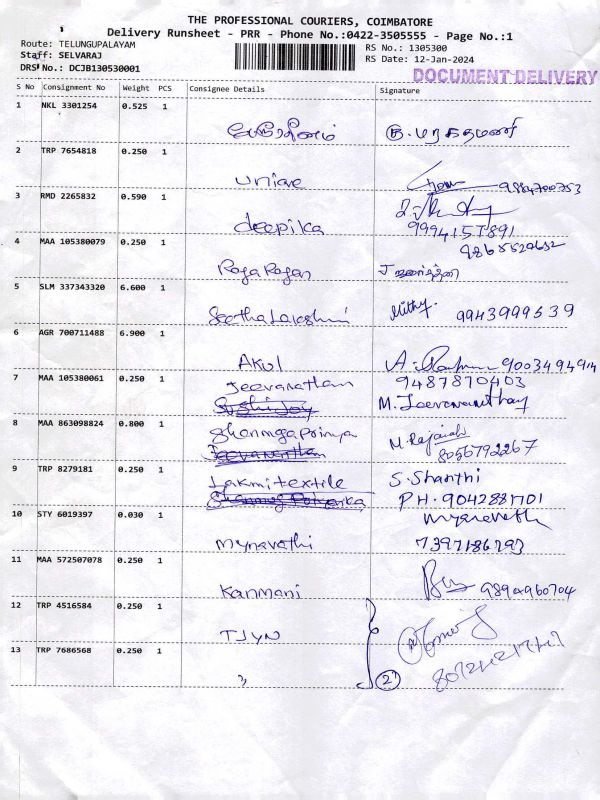 THE PROFESSIONAL COURIERS, COIMBATORE
Delivery Runsheet - PRR - Phone No.:0422-3505555 - Page No.:1
Route: TELUNGUPALAYAM RS No.: 1305300
Staff: SELVARAJ RS Date: 12-Jan-2024
DRS No.: DCJB130530001
DOCUMENT DELIVERY
S No Consignment No Weight PCS Consignee Details Signature
1 NKL 3301254 0.525 1
2 TRP 7654818 0.250 1
unique 9884700753
3 RMD 2265832 0.590 1
deepika 9994157891
4 MAA 105380079 0.250 1
Raga Ragan
5 SLM 337343320 6.600 1
Seetha Lakshmi Mithy. 9943999639
6 AGR 700711488 6.900 1
Akul 9003494914
7 MAA 105380061 0.250 1
Jeevanathan 9487870403
8 MAA 863098824 0.800 1
M. Rajaiah
8056792267
9 TRP 8279181 0.250 1
Lakmitextile S. Shanthi
PH. 9042881701
10 STY 6019397 0.030 1
mynavathi 7397186293
11 MAA 572507078 0.250 1
Kanmani 9894960704
12 TRP 4516584 0.250 1
TJYN
13 TRP 7686568 0.250 1
2